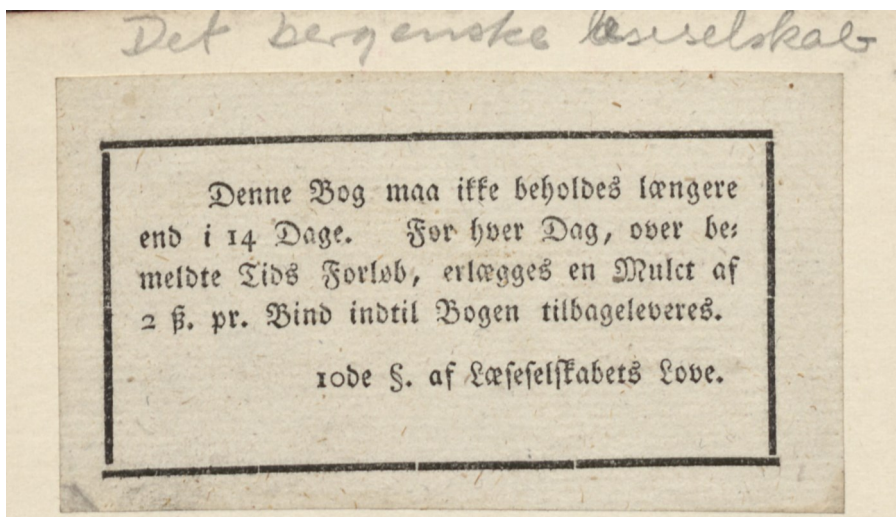 Det bergenske læseselskab
Denne Bog maa ikke beholdes længere
end i 14 Dage. For hver Dag, over be⸗
meldte Tids Forløb, erlægges en Mulct af
2 ß. pr. Bind indtil Bogen tilbageleveres.
10de §. af Læseselskabets Love.